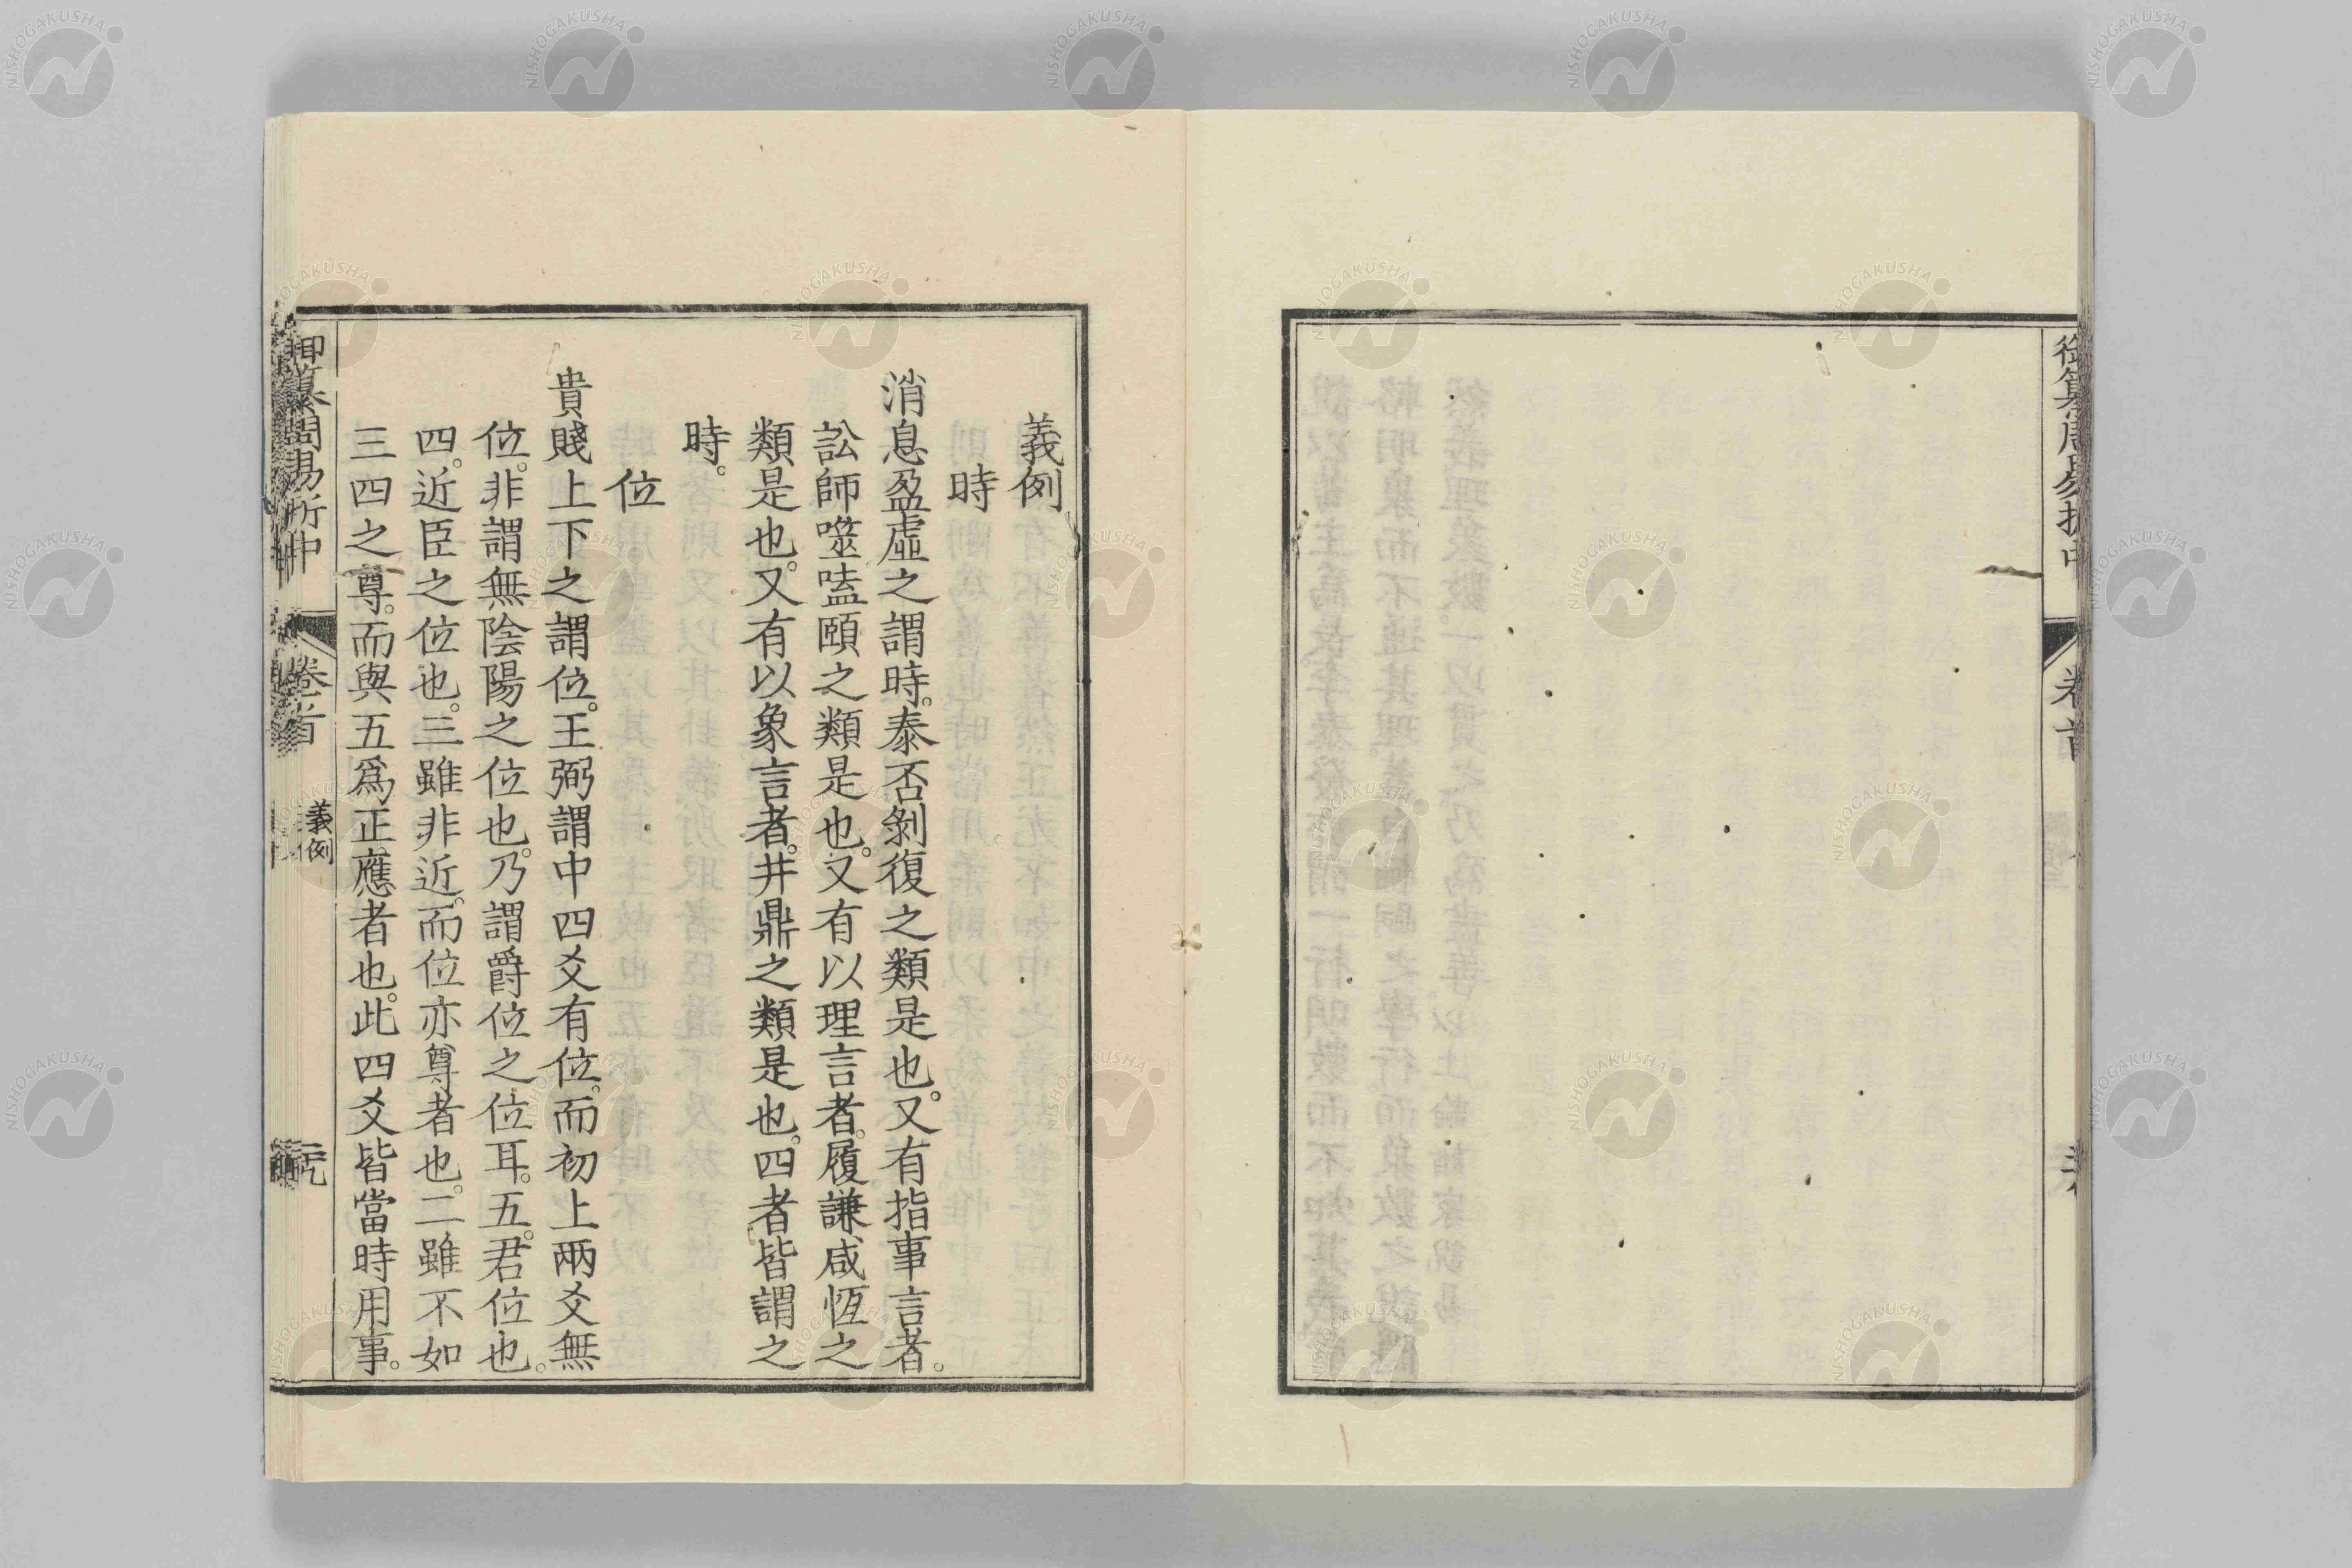 御纂周易折中
卷首
義例
時
消息盈虛之謂時。泰否剝復之類是也。又有指事言者。
訟師噬嗑頤之類是也。又有以理言者。履謙咸恆之
類是也。又有以象言者。井鼎之類是也。四者皆謂之
時。
位
貴賤上下之謂位。王弼謂中四爻有位。而初上兩爻無
位。非謂無陰陽之位也。乃謂爵位之位耳。五。君位也。
四。近臣之位也。三雖非近。而位亦尊者也。二雖不如
三四之尊。而與五爲正應者也。此四爻皆當時用事。
御纂周易折中
卷首
義例
NISHOGAKUSHA